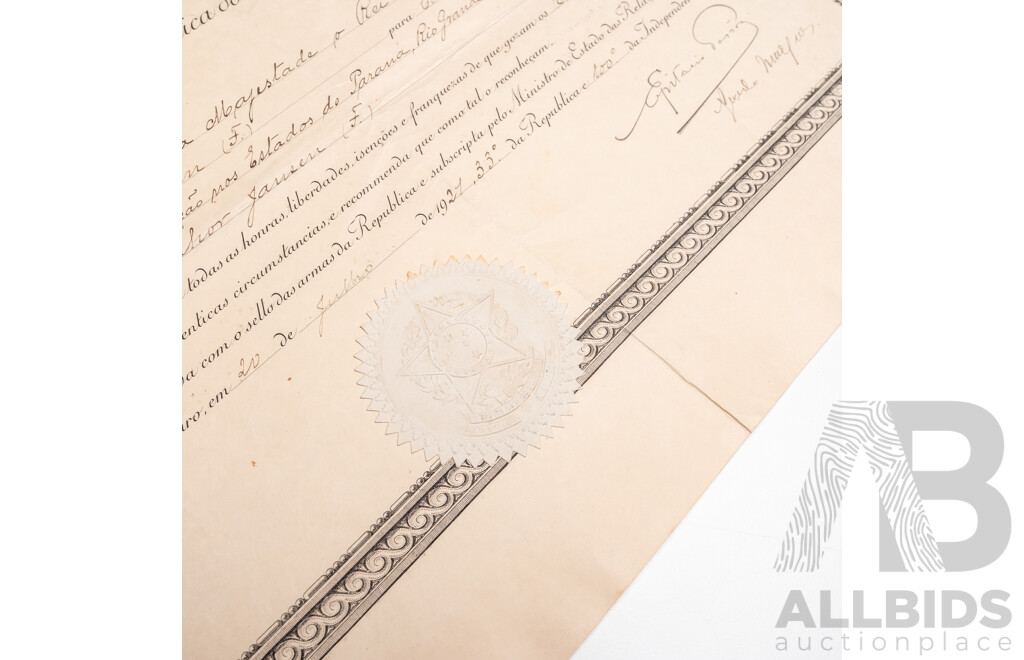 ica do
a Majestade o Rei
para
(F.)
ção nos Estados de Paraná, Rio Grande
hor Jansen (F.)
todas as honras, liberdades, isenções e franquezas de que gozam os
enticas circumstancias, e recommenda que como tal o reconheçam.
sa com o sello das armas da Republica e subscripta pelo Ministro de Estado das Rela
ro, em 20 de Julho de 1921, 33º da Republica e 100º da Independen
Epitacio Pessôa
ALLBIDS
auctionplace